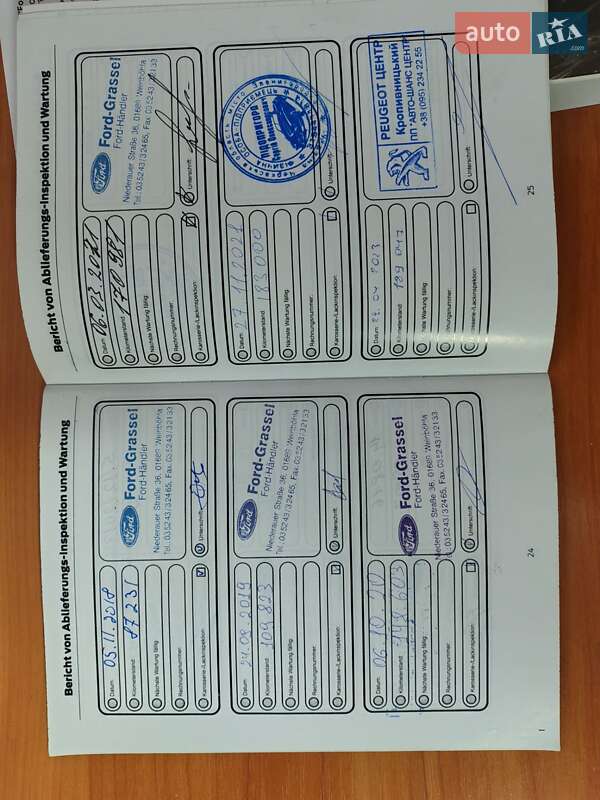 auto RIA.com
Bericht von Ablieferungs-Inspektion und Wartung
Datum: 05.11.2018
Kilometerstand: 87231
Nächste Wartung fällig:
Rechnungsnummer:
Karosserie-/Lackinspektion:
Ford
Ford-Grassel
Ford-Händler
Niederauer Straße 36, 01689 Weinböhla
Tel.: 03 52 43 / 3 24 65, Fax 03 52 43 / 3 21 33
Unterschrift:
Datum: 24.09.2019
Kilometerstand: 109 893
Nächste Wartung fällig:
Rechnungsnummer:
Karosserie-/Lackinspektion:
Ford
Ford-Grassel
Ford-Händler
Niederauer Straße 36, 01689 Weinböhla
Tel.: 03 52 43 / 3 24 65, Fax 03 52 43 / 3 21 33
Unterschrift:
Datum: 06.10.20
Kilometerstand:
Nächste Wartung fällig:
Rechnungsnummer:
Karosserie-/Lackinspektion:
Ford
Ford-Grassel
Ford-Händler
Niederauer Straße 36, 01689 Weinböhla
Tel.: 03 52 43 / 3 24 65, Fax 03 52 43 / 3 21 33
Unterschrift:
24
Bericht von Ablieferungs-Inspektion und Wartung
Datum: 06.03.2021
Kilometerstand:
Nächste Wartung fällig:
Rechnungsnummer:
Karosserie-/Lackinspektion:
Ford
Ford-Grassel
Ford-Händler
Niederauer Straße 36, 01689 Weinböhla
Tel.: 03 52 43 / 3 24 65, Fax 03 52 43 / 3 21 33
Unterschrift:
Datum: 27.11.2021
Kilometerstand: 183000
Nächste Wartung fällig:
Rechnungsnummer:
Karosserie-/Lackinspektion:
ПІДПРИГОРА
Сергій
Unterschrift:
Datum: 04 2023
Kilometerstand: 189 047
Nächste Wartung fällig:
Rechnungsnummer:
Karosserie-/Lackinspektion:
PEUGEOT ЦЕНТР
Кропивницький
ПП АВТО-ШАНС ЦЕНТР
+38 (095) 234 22 55
PEUGEOT
Unterschrift:
25